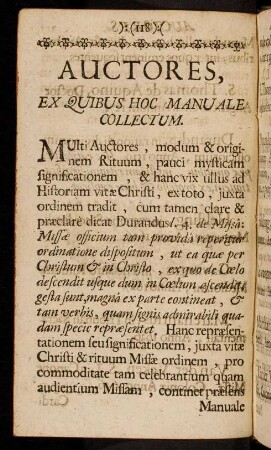 ):(118):(
AUCTORES,
EX QUIBUS HOC MANUALE
COLLECTUM.
MUlti Auctores, modum & origi-
nem Rituum, pauci mysticam
significationem, & hanc vix ullus ad
Historiam vitæ Christi, ex toto, juxta
ordinem tradit, cum tamen clare &
præclare dicat Durandus l. 4. de Missa:
Missæ officium tam provida reperitur
ordinatione dispositum, ut ea quæ per
Christum & in Christo, ex quo de Cœlo
descendit usque dum in Cœlum ascendit,
gesta sunt, magnâ ex parte contineat, &
tam verbis, quam signis, admirabili qua-
dam specie repræsentet. Hanc repræsen-
tationem seu significationem, juxta vitæ
Christi & rituum Missæ ordinem, pro
commoditate tam celebrantium quam
audientium Missam, continet præsens
Manuale